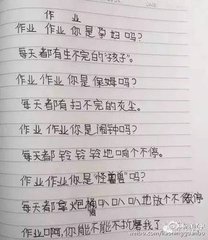 作 业
作业 作业 你是 孕妇 吗?
每天都有生不完的"孩子"。
作业 作业 你是 保姆 吗?
每天都有扫不完的灰尘。
作业 作业 你是 闹钟吗?
每天都 铃 铃 铃 地响个不停。
作业作业你是"怪兽"吗?
每天都拿炮 叭叭叭地放个不停
作业啊,你能不能不折磨我了